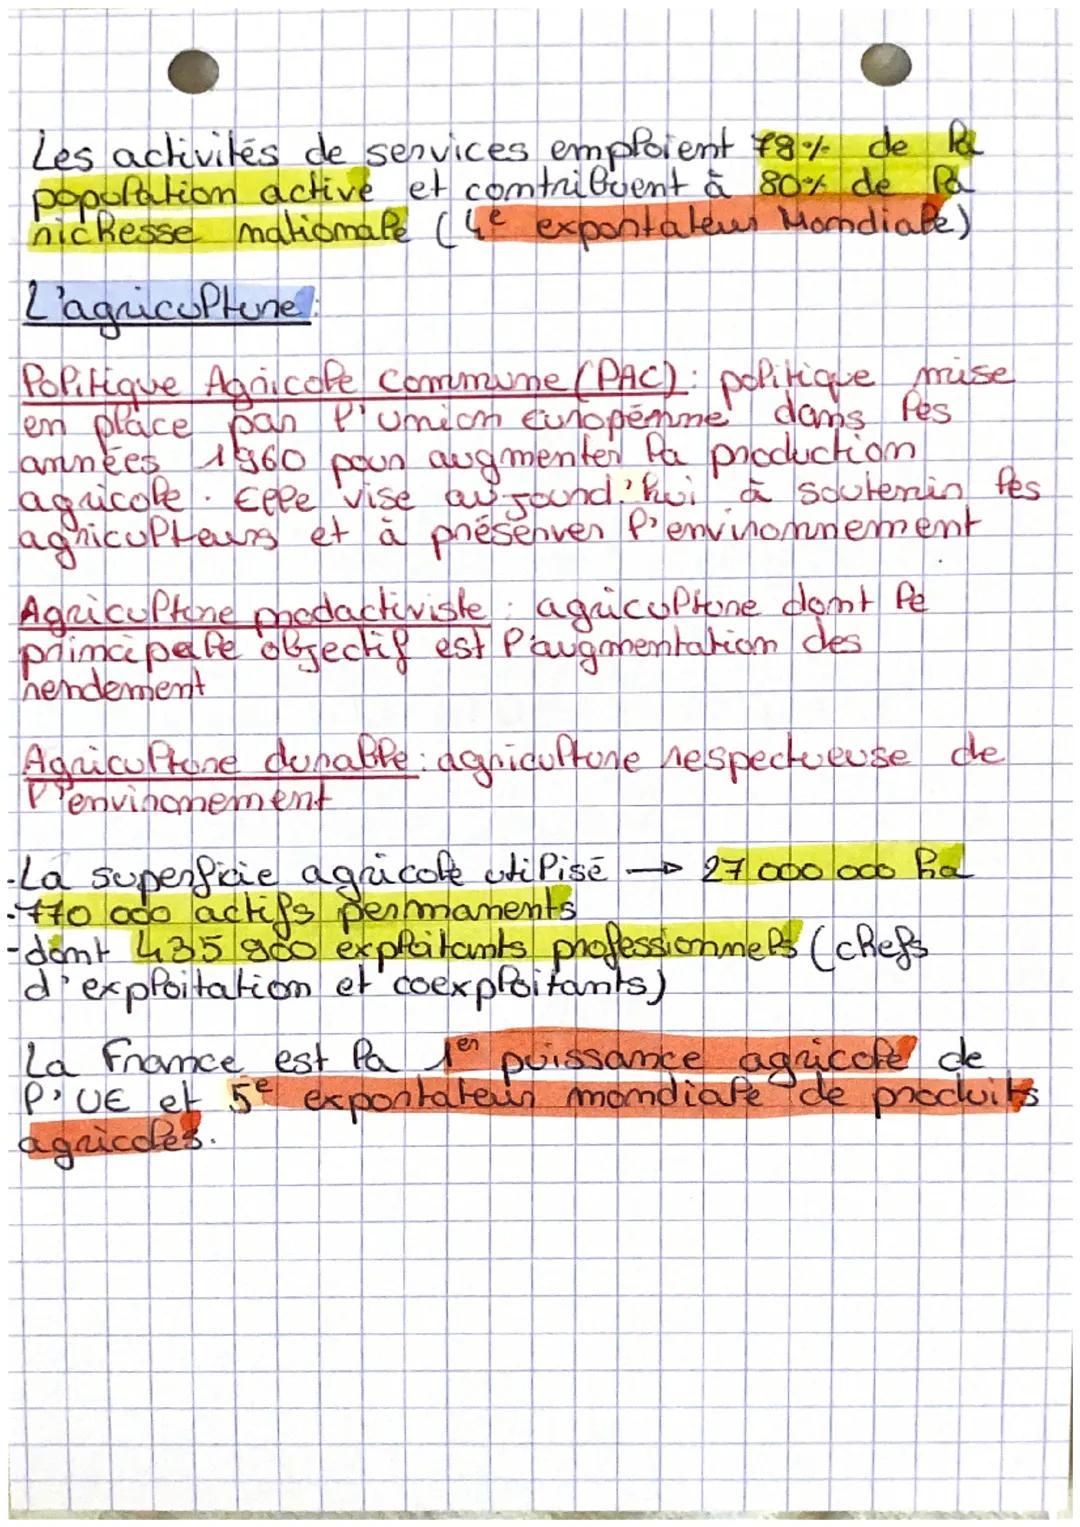 Les activités de services emploient 78% de la
population active et contribuent à 80% de la
richesse nationale (4e exportateur Mondiale)
L'agriculture:
Politique Agricole Commune (PAC) : politique mise
en place par l'union européenne dans les
années 1960 pour augmenter la production
agricole. Elle vise aujourd'hui à soutenir les
agriculteurs et à préserver l'environnement
Agriculture productiviste : agriculture dont le
principale objectif est l'augmentation des
rendement
Agriculture durable : agriculture respectueuse de
l'environement
-La superficie agricole utilisé → 27 000 000 ha
-770 000 actifs permanents
-dont 435 900 exploitants professionnels (chefs
d'exploitation et coexploitants)
La France est la 1er puissance agricole de
l'UE et 5e exportateur mondiale de produits
agricoles.